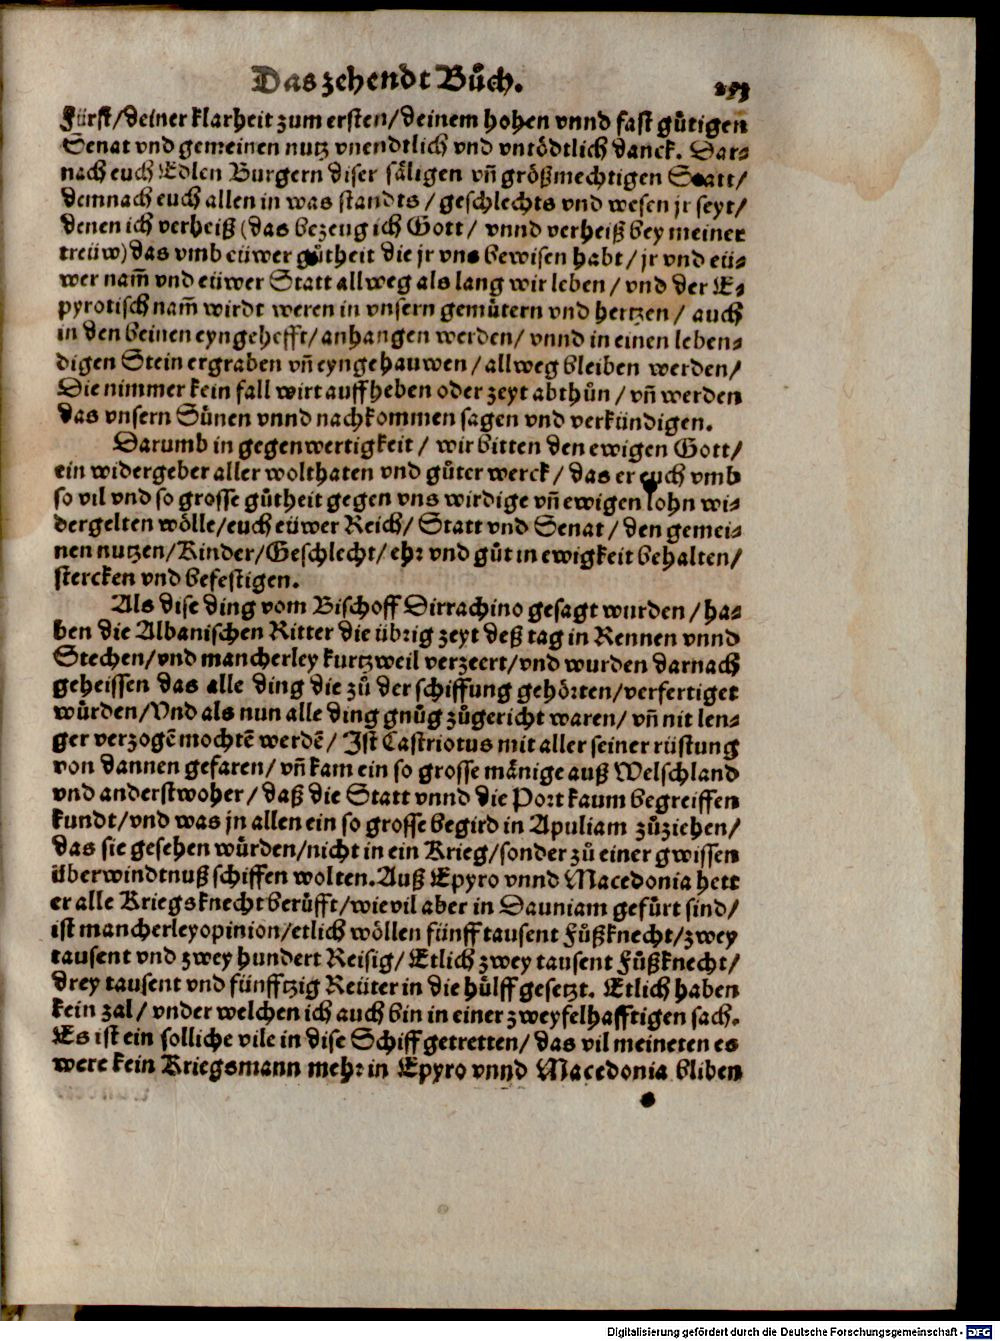 Das zehendt Bůch.
Fürst/deiner klarheit zum ersten/deinem hohen vnnd fast gůtigen
Senat vnd gemeinen nutz vnendtlich vnd vntödtlich danck. Dar⸗
nach euch Edlen Burgern diser säligen vñ größmechtigen Statt/
demnach euch allen in was standts / geschlechts vnd wesen jr seyt/
denen ich verheiß (das bezeug ich Gott / vnnd verheiß bey meiner
treüw) das vmb eüwer gůtheit die jr vns bewisen habt / jr vnd eü⸗
wer nam̃ vnd eüwer Statt allweg als lang wir leben / vnd der E⸗
pyrotisch nam̃ wirdt weren in vnsern gemůtern vnd hertzen / auch
in den beinen eyngehefft/ anhangen werden/ vnnd in einen leben⸗
digen Stein ergraben vñ eyngehauwen / allweg bleiben werden/
Die nimmer kein fall wirt auffheben oder zeyt abthůn / vñ werden
das vnsern Sünen vnnd nachkommen sagen vnd verkündigen.
Darumb in gegenwertigkeit / wir bitten den ewigen Gott/
ein widergeber aller wolthaten vnd gůter werck / das er euch vmb
so vil vnd so grosse gůtheit gegen vns wirdige vñ ewigen lohn wi⸗
dergelten wölle/euch eüwer Reich/ Statt vnd Senat / den gemei⸗
nen nutzen/Kinder/Geschlecht/ ehr vnd gůt in ewigkeit behalten/
stercken vnd befestigen.
Als dise ding vom Bischoff Dirrachino gesagt wurden / ha⸗
ben die Albanischen Ritter die übrig zeyt deß tag in Rennen vnnd
Stechen/vnd mancherley kurtzweil verzeert/vnd wurden darnach
geheissen das alle ding die zů der schiffung gehörten/verfertiget
würden/Vnd als nun alle ding gnůg zůgericht waren/ vñ nit len⸗
ger verzogē mochtē werdē/ Ist Castriotus mit aller seiner rüstung
von dannen gefaren/ vñ kam ein so grosse mänige auß Welschland
vnd anderstwoher / daß die Statt vnnd die Port kaum begreiffen
kundt/vnd was jn allen ein so grosse begird in Apuliam zůziehen/
das sie gesehen würden/nicht in ein Krieg/sonder zů einer gwissen
überwindtnuß schiffen wolten. Auß Epyro vnnd Macedonia hett
er alle Kriegsknecht berůfft/wie vil aber in Dauniam gefürt sind/
ist mancherley opinion/etlich wöllen fünff tausent Fůßknecht/zwey
tausent vnd zwey hundert Reisig/ Etlich zwey tausent Fůßknecht/
drey tausent vnd fünfftzig Reüter in die hülff gesetzt. Etlich haben
kein zal / vnder welchen ich auch bin in einer zweyfelhafftigen sach.
Es ist ein solliche vile in dise Schiff getretten/ das vil meineten es
were kein Kriegsmann mehr in Epyro vnnd Macedonia bliben
Digitalisierung gefördert durch die Deutsche Forschungsgemeinschaft - DFG